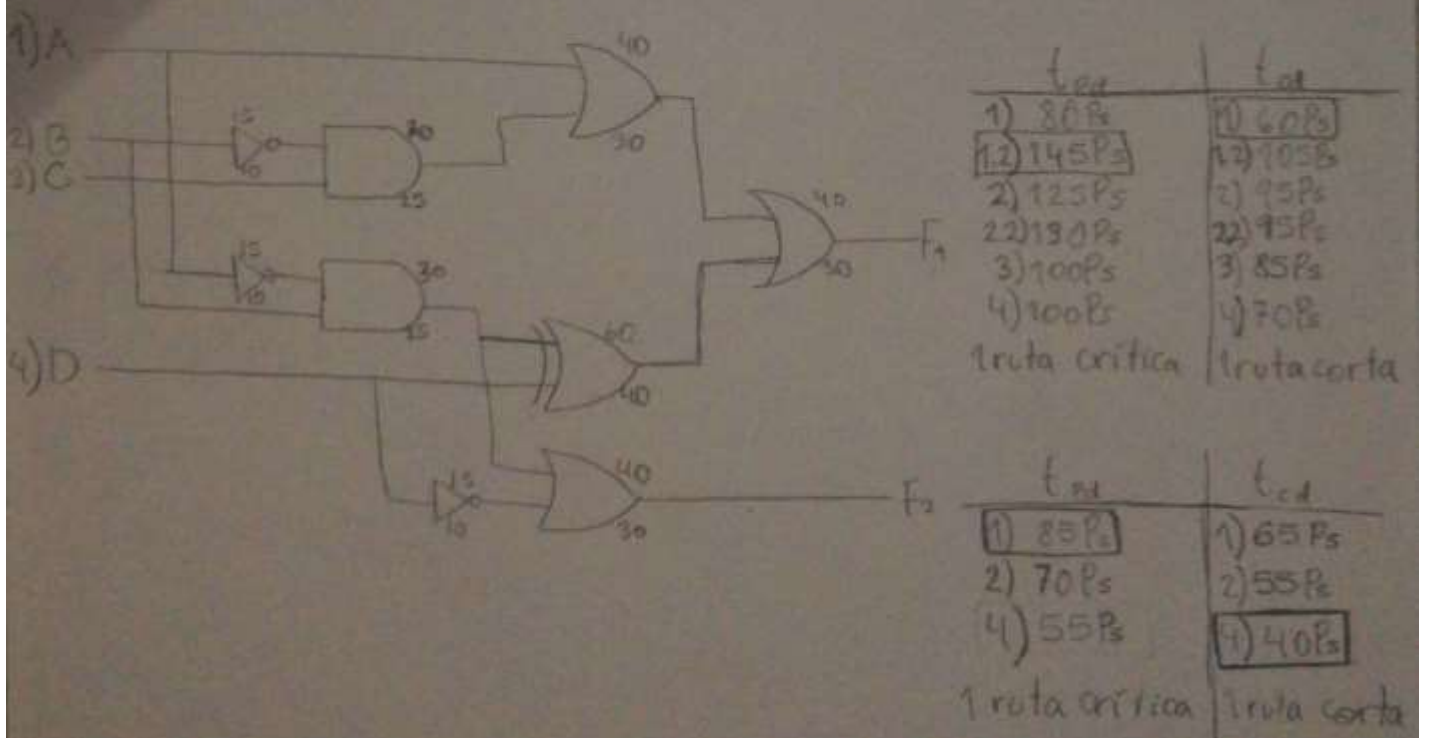 1) A
40
30
2) B
15
10
30
25
3) C
40
30
F1
15
10
30
25
60
40
4) D
15
10
40
30
F2
tpd tcd
1) 80Ps 1) 60Ps
1.2) 145Ps 1.2) 105Ps
2) 125Ps 2) 95Ps
22) 130Ps 22) 95Ps
3) 100Ps 3) 85Ps
4) 100Ps 4) 70Ps
1 ruta crítica 1 ruta corta
tpd tcd
1) 85Ps 1) 65Ps
2) 70Ps 2) 55Ps
4) 55Ps 4) 40Ps
1 ruta crítica 1 ruta corta